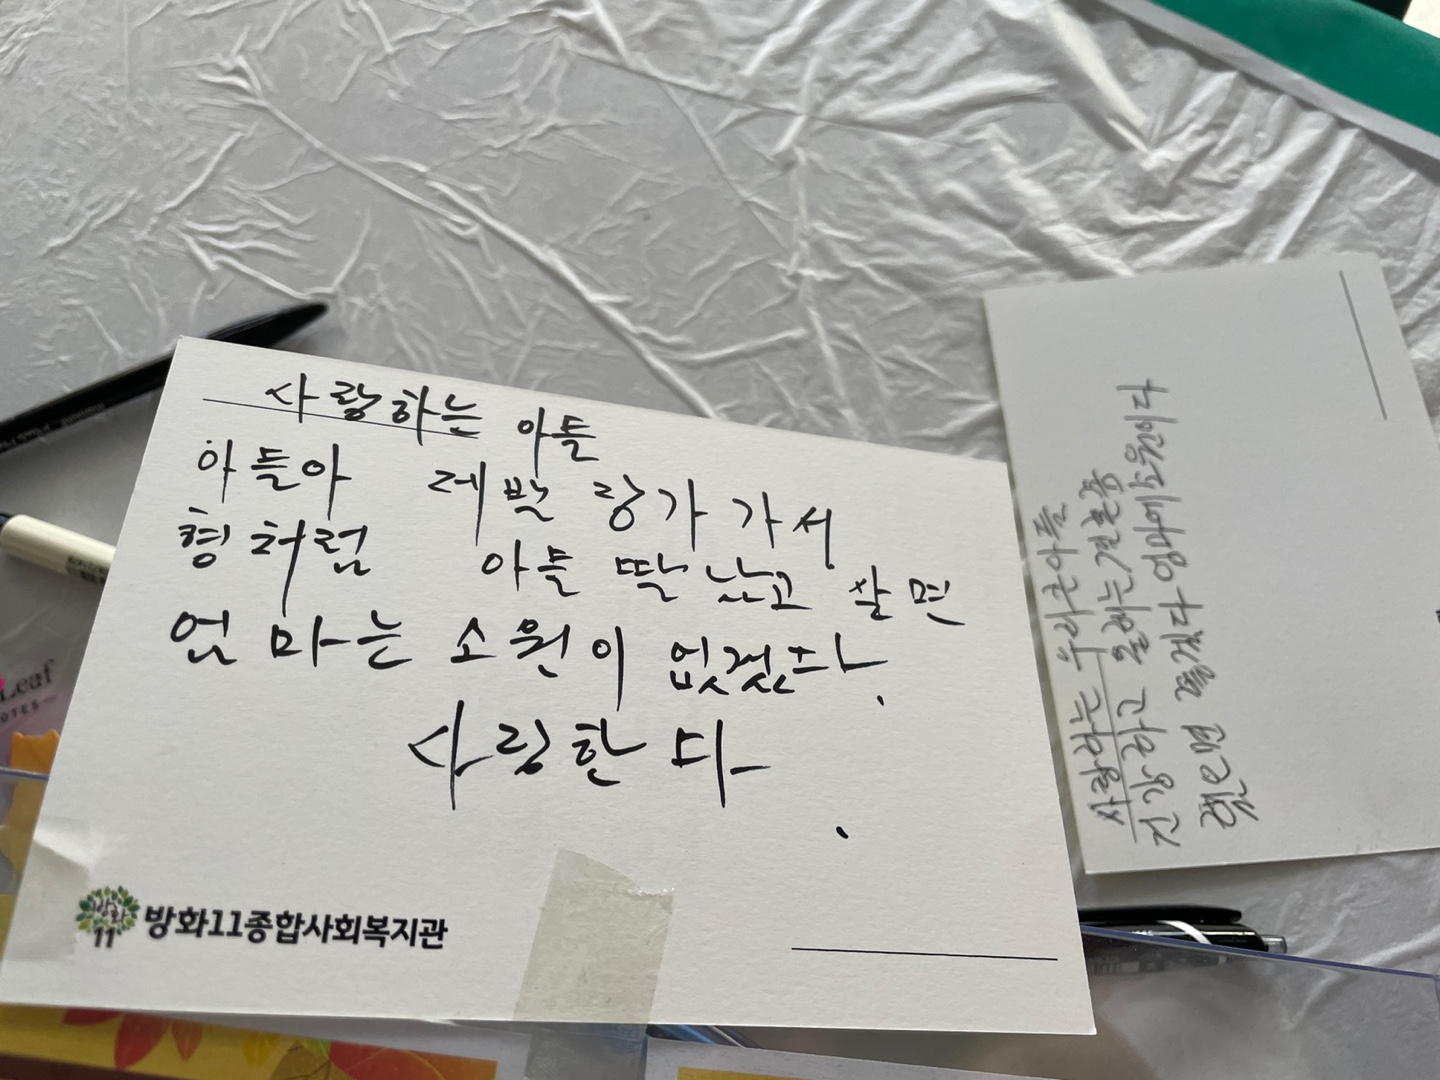 사랑하는 아들
아들아 제발 장가 가서
형처럼 아들 딸 낳고 살면
엄마는 소원이 없겠다.
사랑한다.
방화
11
방화11종합사회복지관
사랑하는 우리 큰아들
건강하고 올해는 결혼좀
했으면 좋겠다 엄마에 소원이다
Leaf